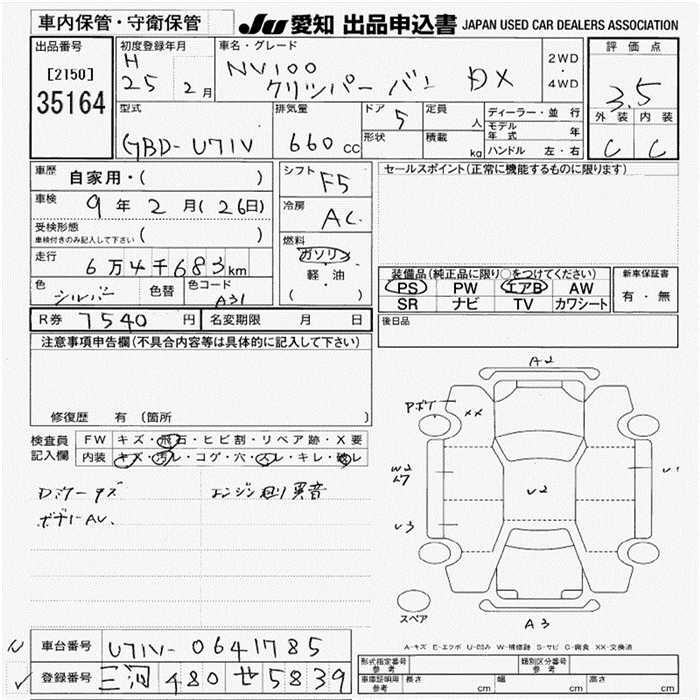 車内保管・守衛保管 JU 愛知 出品申込書 JAPAN USED CAR DEALERS ASSOCIATION
出品番号 初度登録年月 車名・グレード 2WD・4WD 評価点
[2150] H 25 2月 NV100 クリッパーバン DX 3.5
35164 型式 排気量 ドア 5 定員 人 ディーラー・並行 外装 内装
GBD-U71V 660cc 形状 積載 kg モデル年式 年 C C
ハンドル 左・右
車歴 自家用・( ) シフト F5 セールスポイント(正常に機能するものに限ります)
車検 9年2月(26日) 冷房 AC
受検形態 車検付きのみ記入して下さい ( )
燃料 ガソリン 軽油 ( )
走行 6万4千683km 装備品(純正品に限り○をつけてください) 新車保証書
色 シルバー 色替 色コード A31 PS PW エアB AW 有・無
SR ナビ TV カワシート
R券 7540円 名変期限 月 日 後日品
注意事項申告欄(不具合内容等は具体的に記入して下さい)
A2
Pポイ XX
修復歴 有 (箇所 )
検査員記入欄 FW キズ・飛石・ヒビ割・リペア跡・X要
内装 キズ・汚レ・コゲ・穴・スレ・キレ・破レ
W2
U2
エンジン廻り異音
ボデーAU.
U3
スペア
A3
A-キズ E-エクボ U-凹み W-補修跡 S-サビ C-腐食 XX-交換済
車台番号 U71V-0641785
登録番号 三河 480 せ 5839
形式指定番号 参考 類別区分番号 参考
車庫証明用 参考 長さ cm 幅 cm 高さ cm